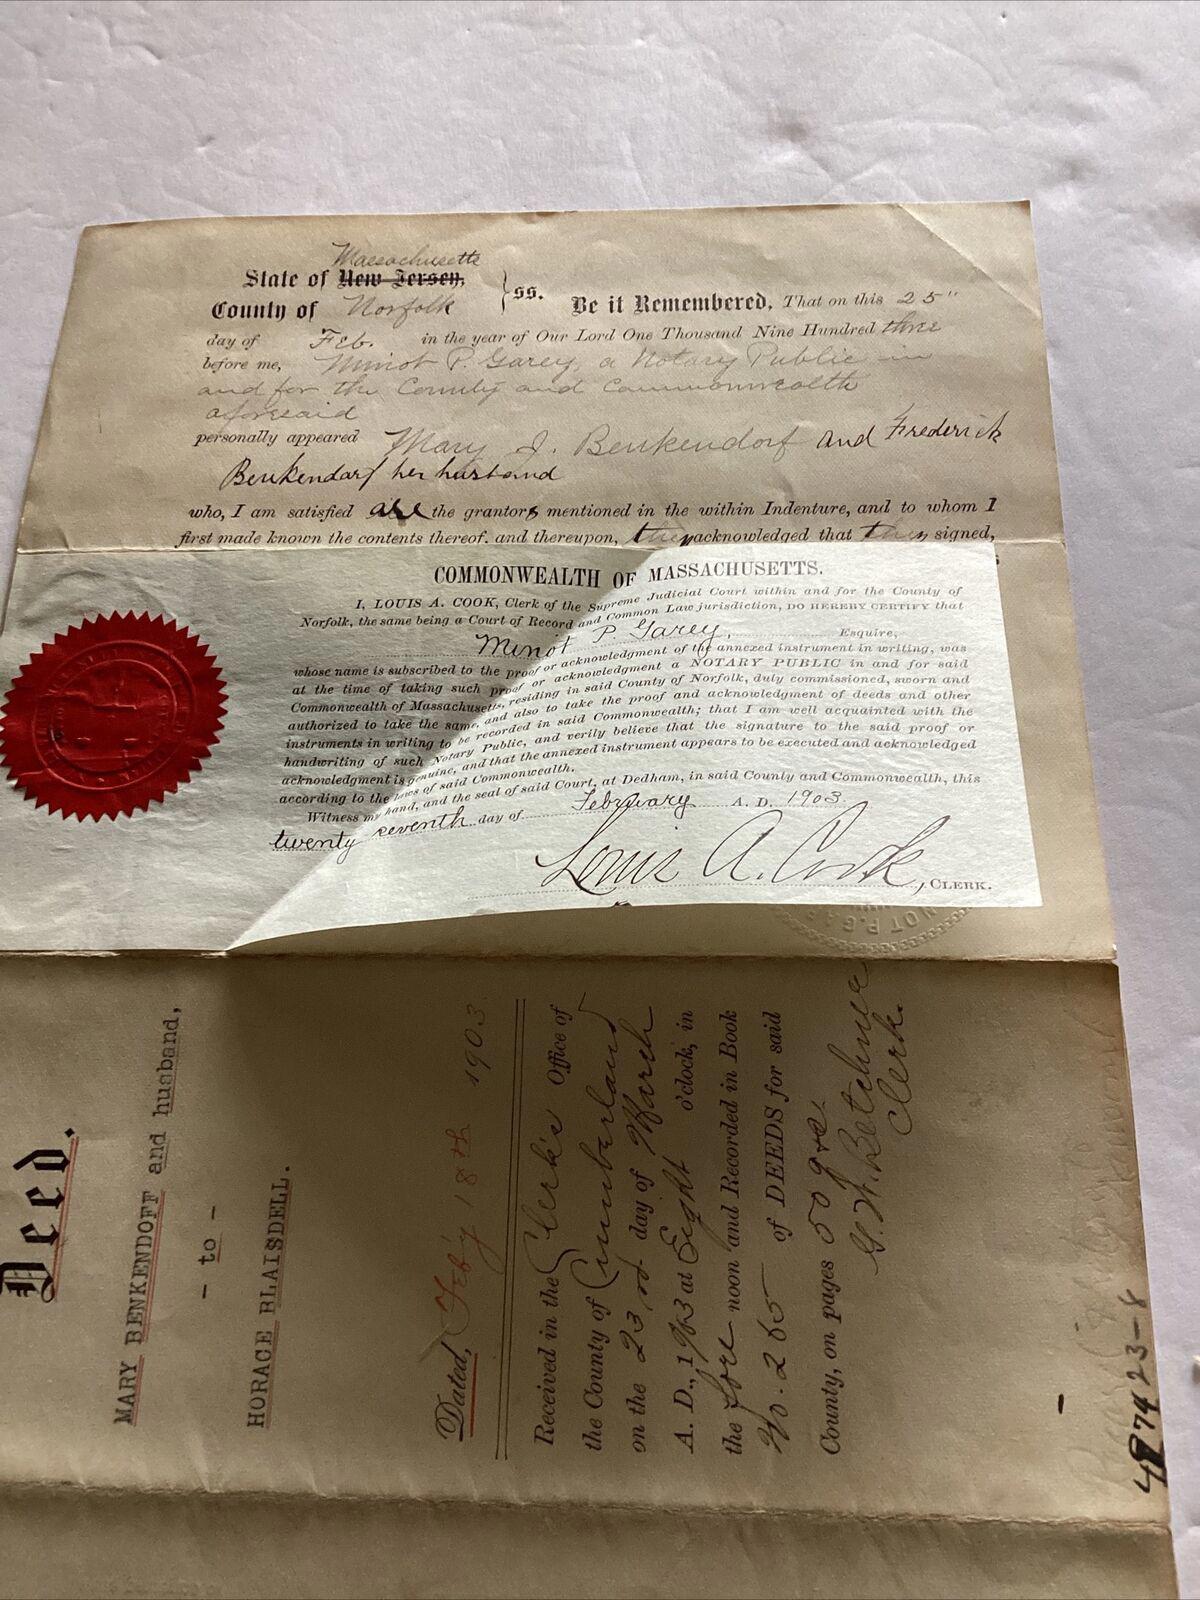 Massachusetts
State of New Jersey,
County of Norfolk } ss. Be it Remembered, That on this 25"
day of Feb. in the year of Our Lord One Thousand Nine Hundred three
before me, Minot P. Garey, a Notary Public in
and for the County and Commonwealth
aforesaid
personally appeared Mary J. Benkendorf and Frederick
Benkendorf her husband
who, I am satisfied are the grantors mentioned in the within Indenture, and to whom I
first made known the contents thereof. and thereupon, they acknowledged that they signed,
COMMONWEALTH OF MASSACHUSETTS.
I, LOUIS A. COOK, Clerk of the Supreme Judicial Court within and for the County of
Norfolk, the same being a Court of Record and Common Law jurisdiction, DO HEREBY CERTIFY that
Minot P. Garey, Esquire,
whose name is subscribed to the proof or acknowledgment of the annexed instrument in writing, was
at the time of taking such proof or acknowledgment a NOTARY PUBLIC in and for said
Commonwealth of Massachusetts, residing in said County of Norfolk, duly commissioned, sworn and
authorized to take the same, and also to take the proof and acknowledgment of deeds and other
instruments in writing to be recorded in said Commonwealth; that I am well acquainted with the
handwriting of such Notary Public, and verily believe that the signature to the said proof or
acknowledgment is genuine, and that the annexed instrument appears to be executed and acknowledged
according to the laws of said Commonwealth.
Witness my hand, and the seal of said Court, at Dedham, in said County and Commonwealth, this
twenty seventh day of February A. D. 1903
Louis A. Cook, CLERK.
Deed.
MARY BENKENDOFF and husband,
- to -
HORACE BLAISDELL.
Dated, Feb'y 18th 1903.
Received in the Clerk's Office of
the County of Cumberland
on the 23rd day of March
A. D., 1903 at Eight o'clock, in
the fore noon and Recorded in Book
No. 265 of DEEDS for said
County, on pages 50 &c.
Clerk.